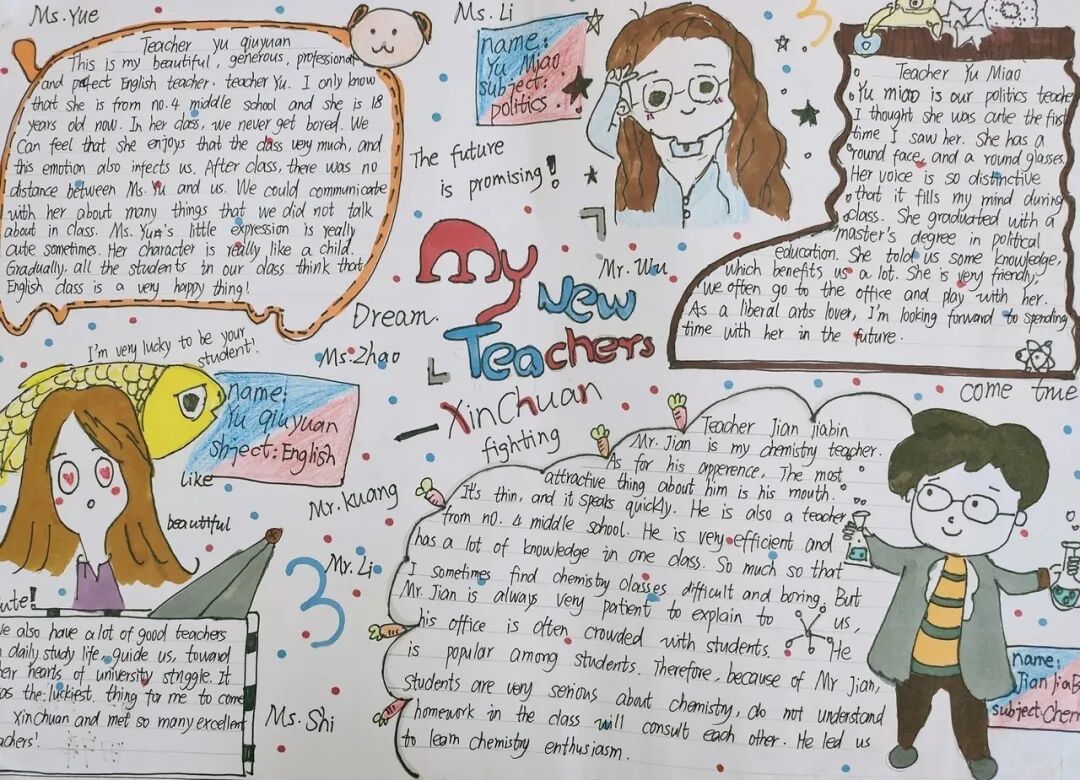 Ms. Yue
Teacher yu qiuyuan
This is my beautiful, generous, professional
and perfect English teacher, teacher Yu. I only know
that she is from no.4 middle school and she is 18
years old now. In her class, we never get bored. We
Can feel that she enjoys that the class very much, and
this emotion also infects us. After class, there was no
distance between Ms. Yu and us. We could communicate
with her about many things that we did not talk
about in class. Ms. Yun's little expression is really
cute sometimes. Her character is really like a child.
Gradually, all the students in our class think that
English class is a very happy thing!
Ms. Li
name:
Yu Miao
subject:
politics
The future
is promising!
3
Teacher Yu Miao
Yu miao is our politics teache
I thought she was cute the first
time I saw her. She has a
round face, and a round glasses.
Her voice is so distinctive
that it fills my mind during
class. She graduated with a
master's degree in political
education. She told us some knowledge,
which benefits us a lot. She is very friendly,
we often go to the office and play with her.
As a liberal arts lover, I'm looking forward to spending
time with her in the future.
Mr. Wu
My
New
Teachers
Dream.
I'm very lucky to be your
student!
Ms. Zhao
XinChuan
fighting
come true
name:
Yu qiuyuan
Sbject: English
like
beautiful
Mr. kuang
Mr. Li
3
Ms. Shi
cute!
We also have a lot of good teachers
daily study life, guide us, toward
their hearts of university struggle. It
was the luckiest thing for me to come
XinChuan and met so many excellent
teachers!
Teacher Jian jiabin
Mr. Jian is my chemistry teacher.
As for his apperence, The most
attractive thing about him is his mouth.
It's thin, and it speaks quickly. He is also a teacher
from no. 4 middle school. He is very efficient and
has a lot of knowledge in one class. So much so that
I sometimes find chemistry classes difficult and boring. But
Mr. Jian is always very patient to explain to us,
his office is often crowded with students. He
is popular among students. Therefore, because of Mr Jian,
students are very serious about chemistry, do not understand
homework in the class will consult each other. He led us
to learn chemistry enthusiasm.
name:
Jian jiaB
subject: Chem